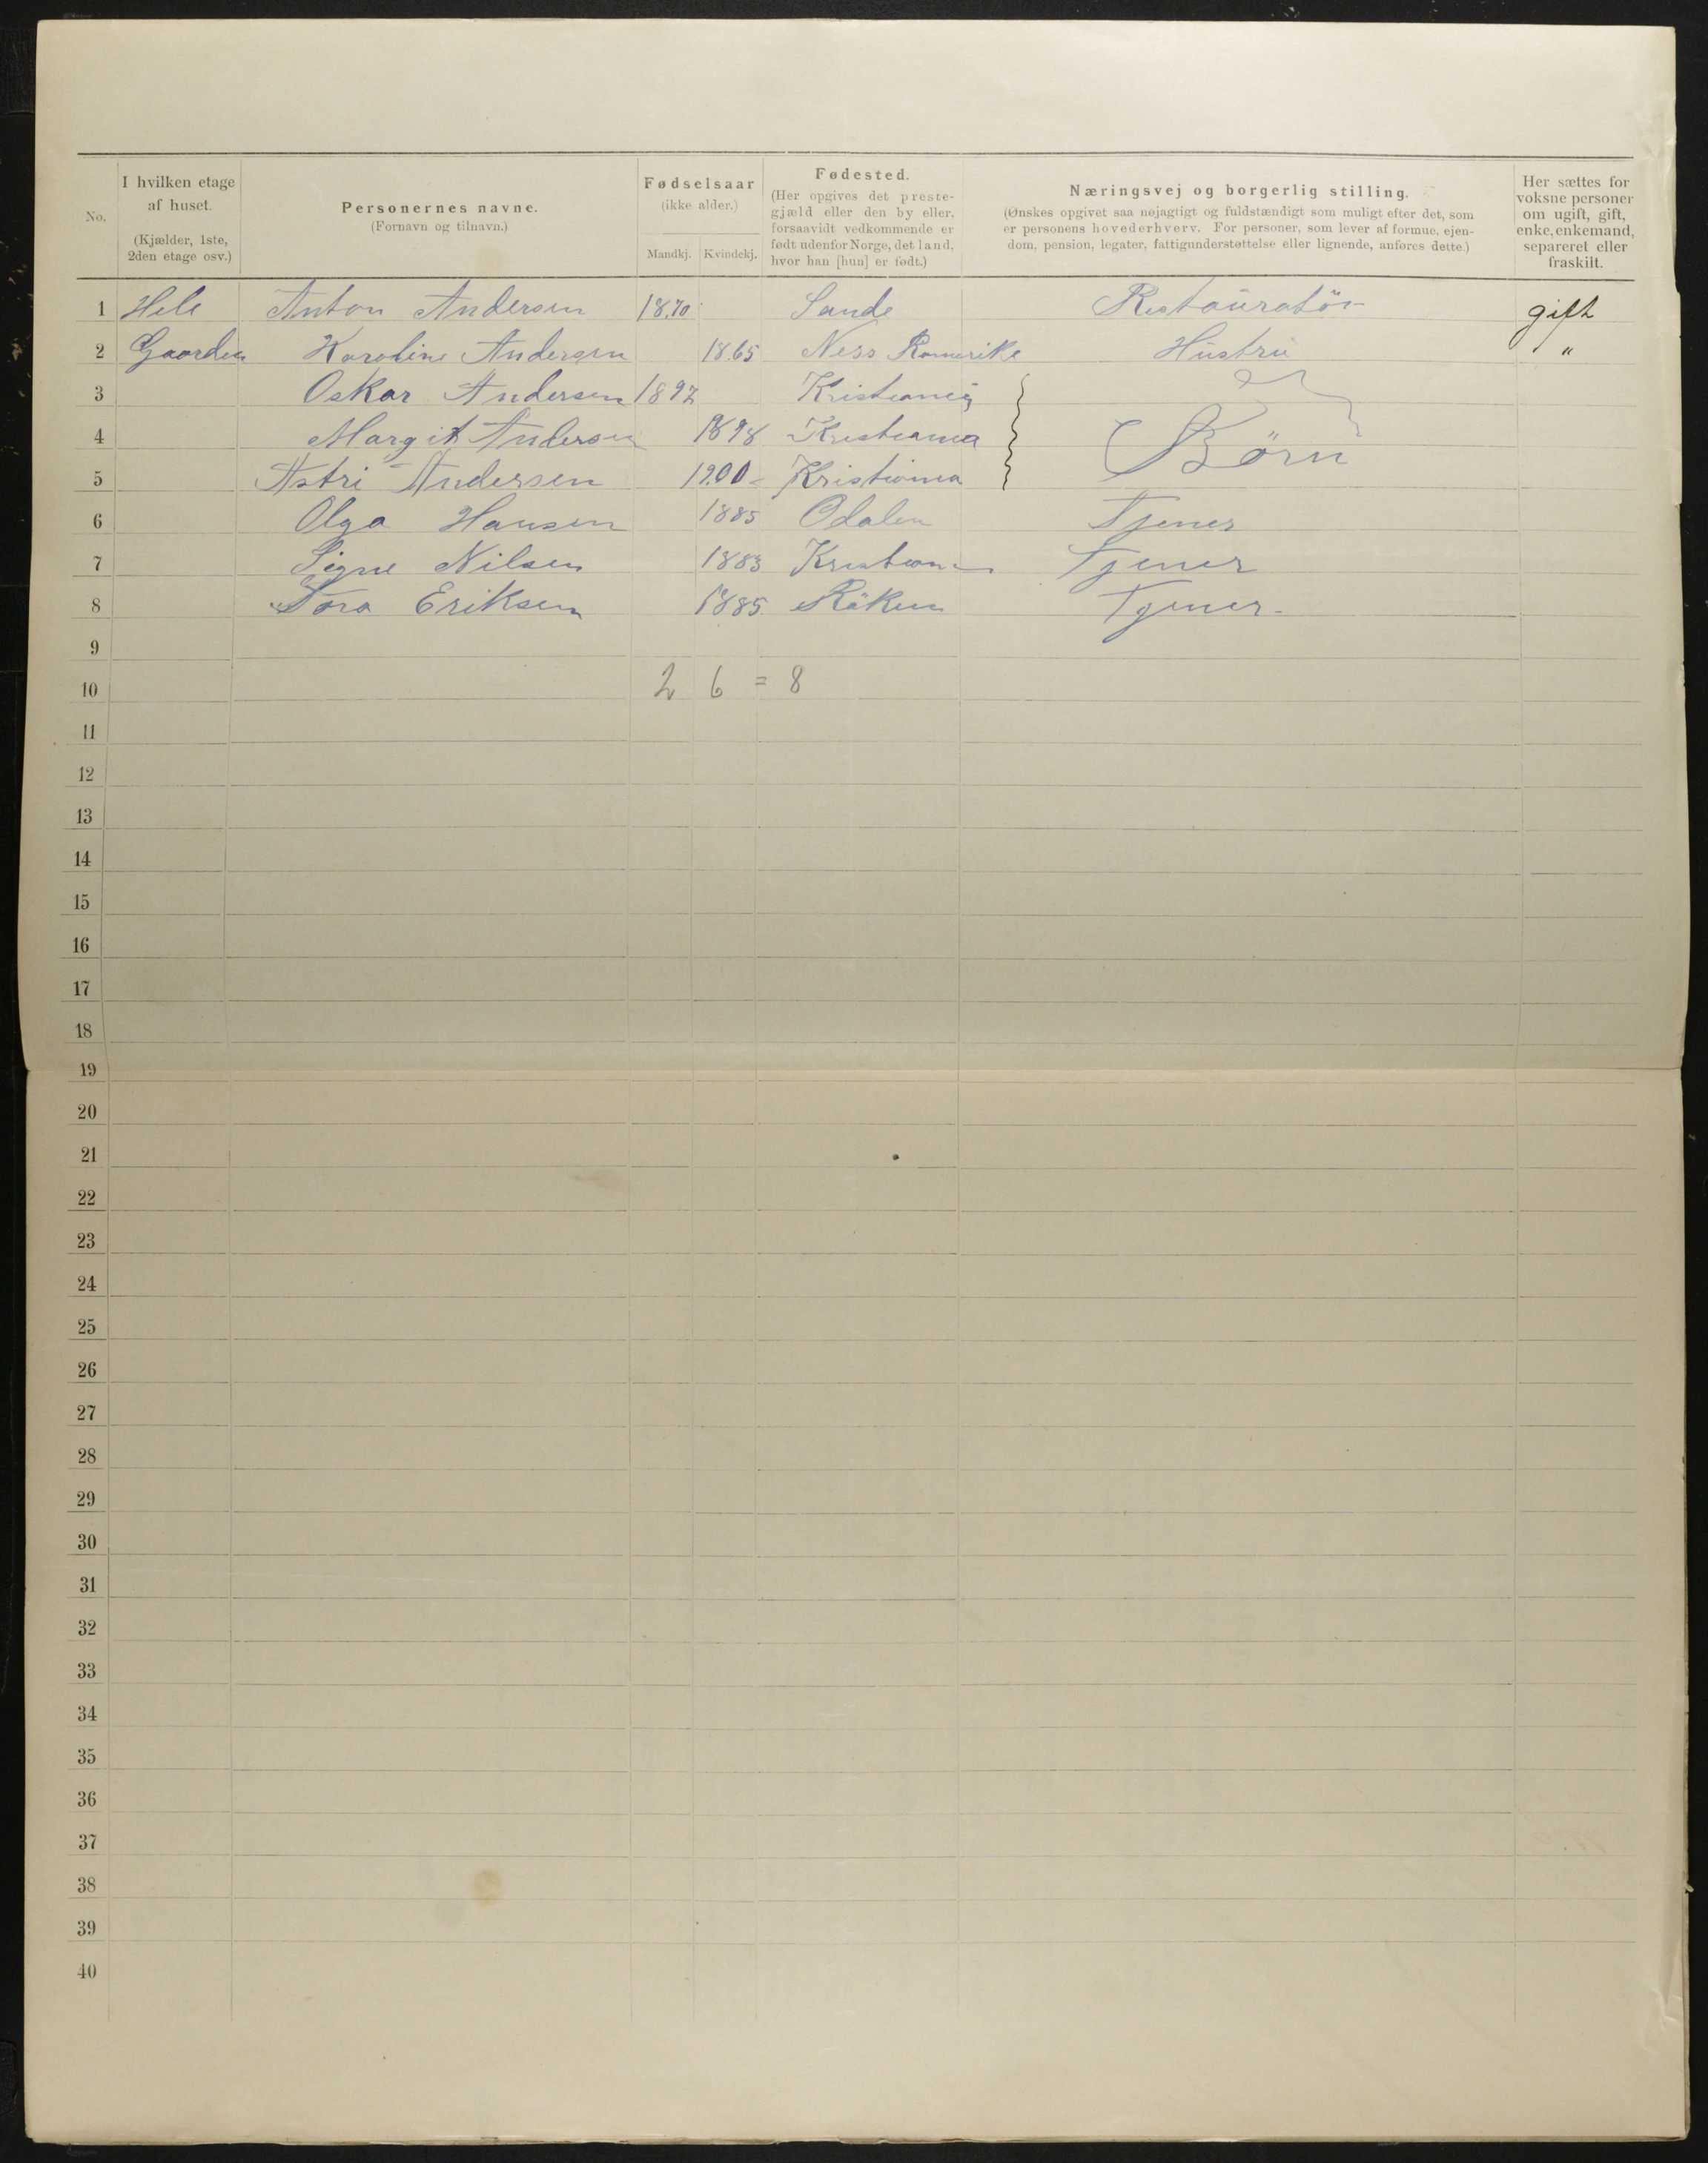 No.
I hvilken etage af huset.
(Kjælder, 1ste, 2den etage osv.)
Personernes navne.
(Fornavn og tilnavn.)
Fødselsaar
(ikke alder.)
Mandkj. Kvindekj.
Fødested.
(Her opgives det preste-
gjæld eller den by eller,
forsaavidt vedkommende er
født udenfor Norge, det land,
hvor han [hun] er født.)
Næringsvej og borgerlig stilling.
(Ønskes opgivet saa nøjagtigt og fuldstændigt som muligt efter det, som
er personens hovederhverv. For personer, som lever af formue, ejen-
dom, pension, legater, fattigunderstøttelse eller lignende, anføres dette.)
Her sættes for
voksne personer
om ugift, gift,
enke, enkemand,
separeret eller
fraskilt.
1 Hele Anton Andersen 1870 Sande Restauratör gift
2 Gaarden Karoline Andersen 1865 Ness Romerike Hustru "
3 Oskar Andersen 1897 Kristiania
4 Margit Andersen 1898 Kristiania Börn
5 Astri Andersen 1900 Kristiania
6 Olga Hansen 1885 Odalen Tjener
7 Signe Nilsen 1883 Kristiania Tjener
8 Tora Eriksen 1885 Röken Tjener
9
10 2 6 = 8
11
12
13
14
15
16
17
18
19
20
21
22
23
24
25
26
27
28
29
30
31
32
33
34
35
36
37
38
39
40